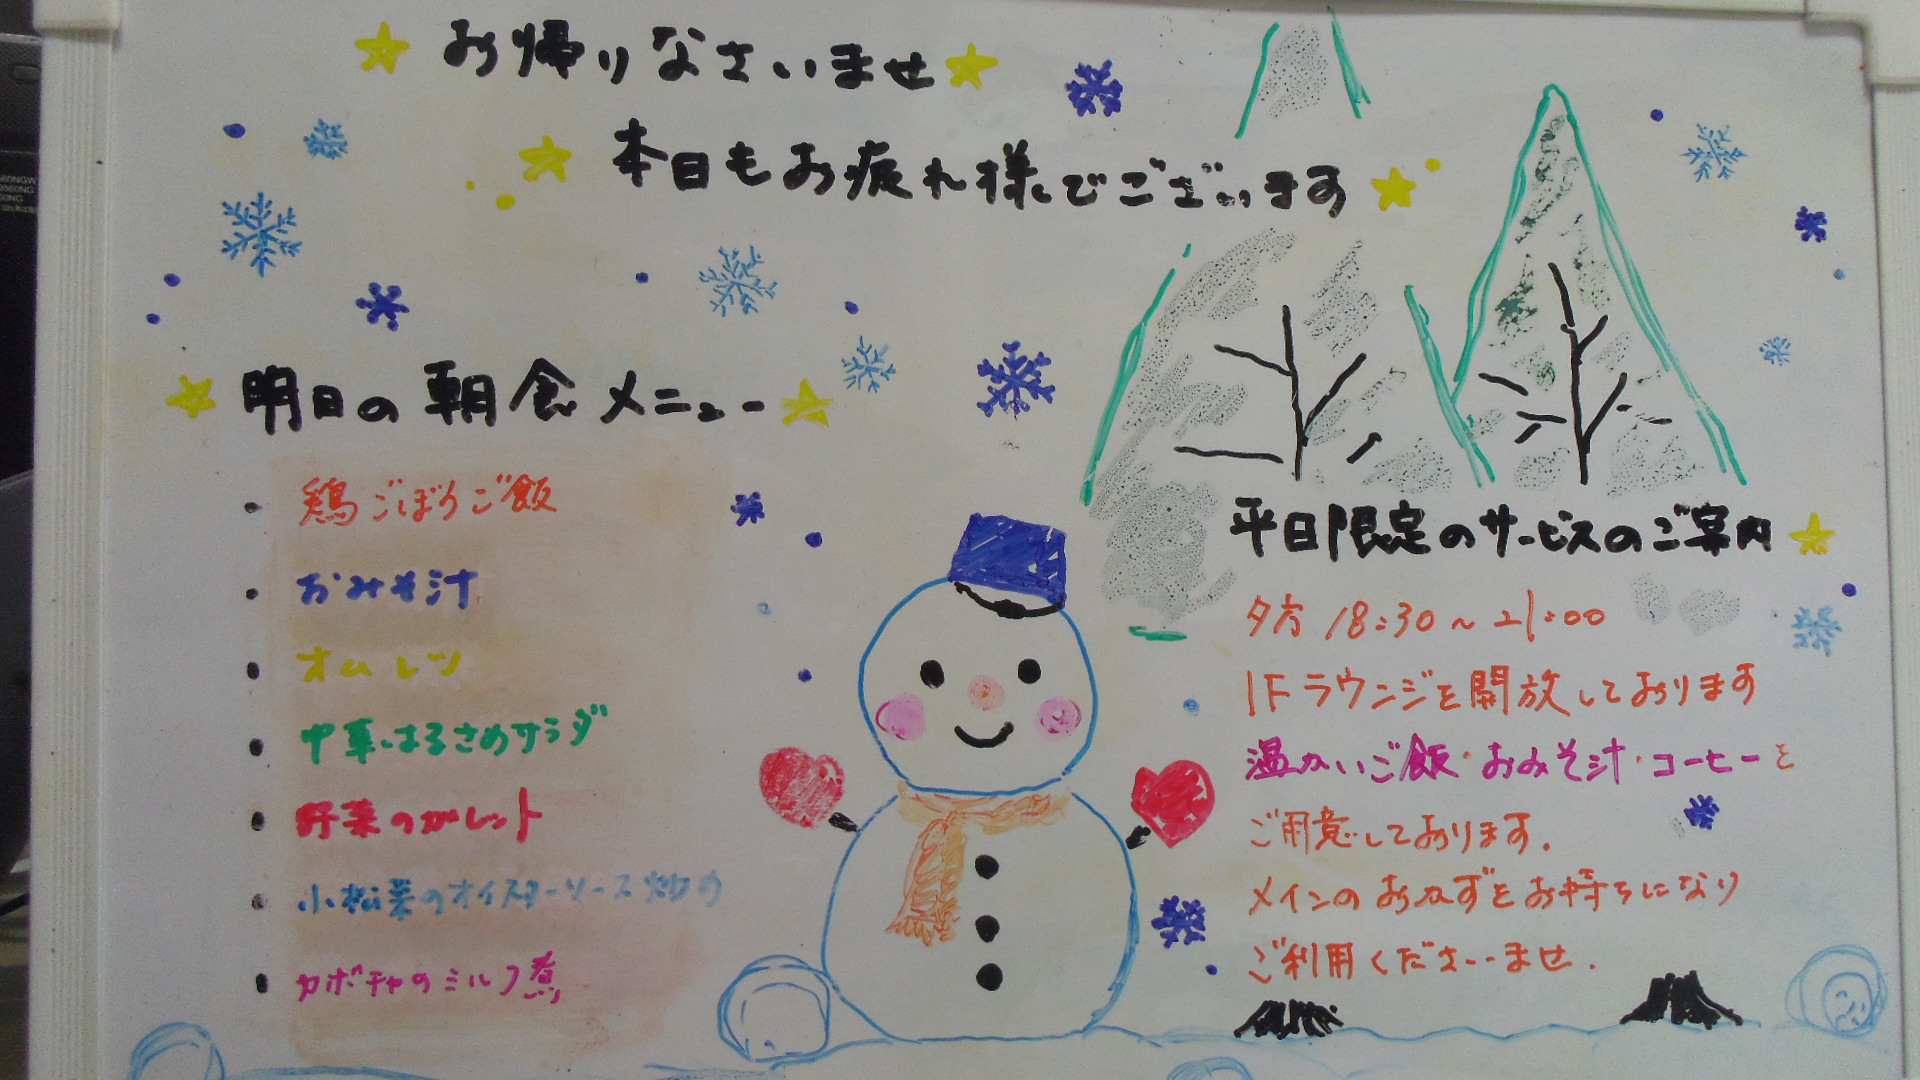 お帰りなさいませ
本日もお疲れ様でございます
明日の朝食メニュー
・鶏ごぼうご飯
・おみそ汁
・オムレツ
・中華はるさめサラダ
・野菜のガレット
・小松菜のオイスターソース炒め
・カボチャのミルク煮
平日限定のサービスのご案内
夕方 18:30~21:00
1Fラウンジを開放しております
温かいご飯・おみそ汁・コーヒーを
ご用意しております.
メインのおかずをお持ちになり
ご利用くださいませ.